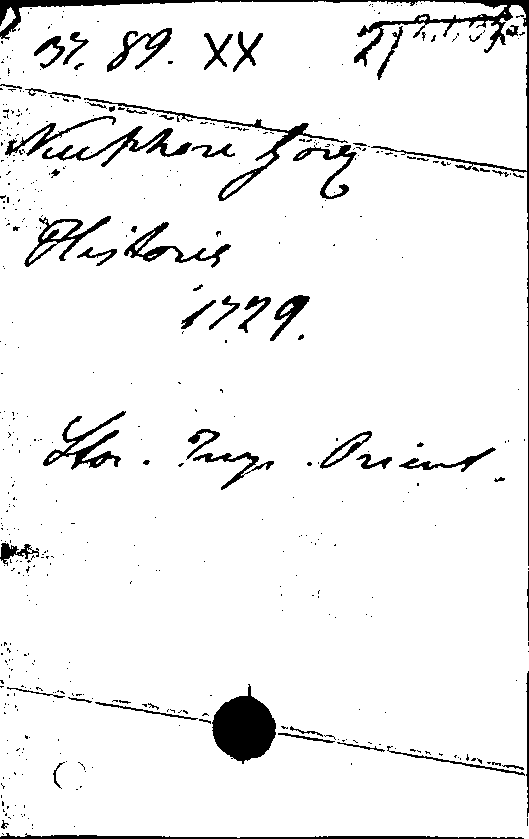 37. 89. XX
Nicephore Greg
Historia
1729.
Stor. Imp. Orient.